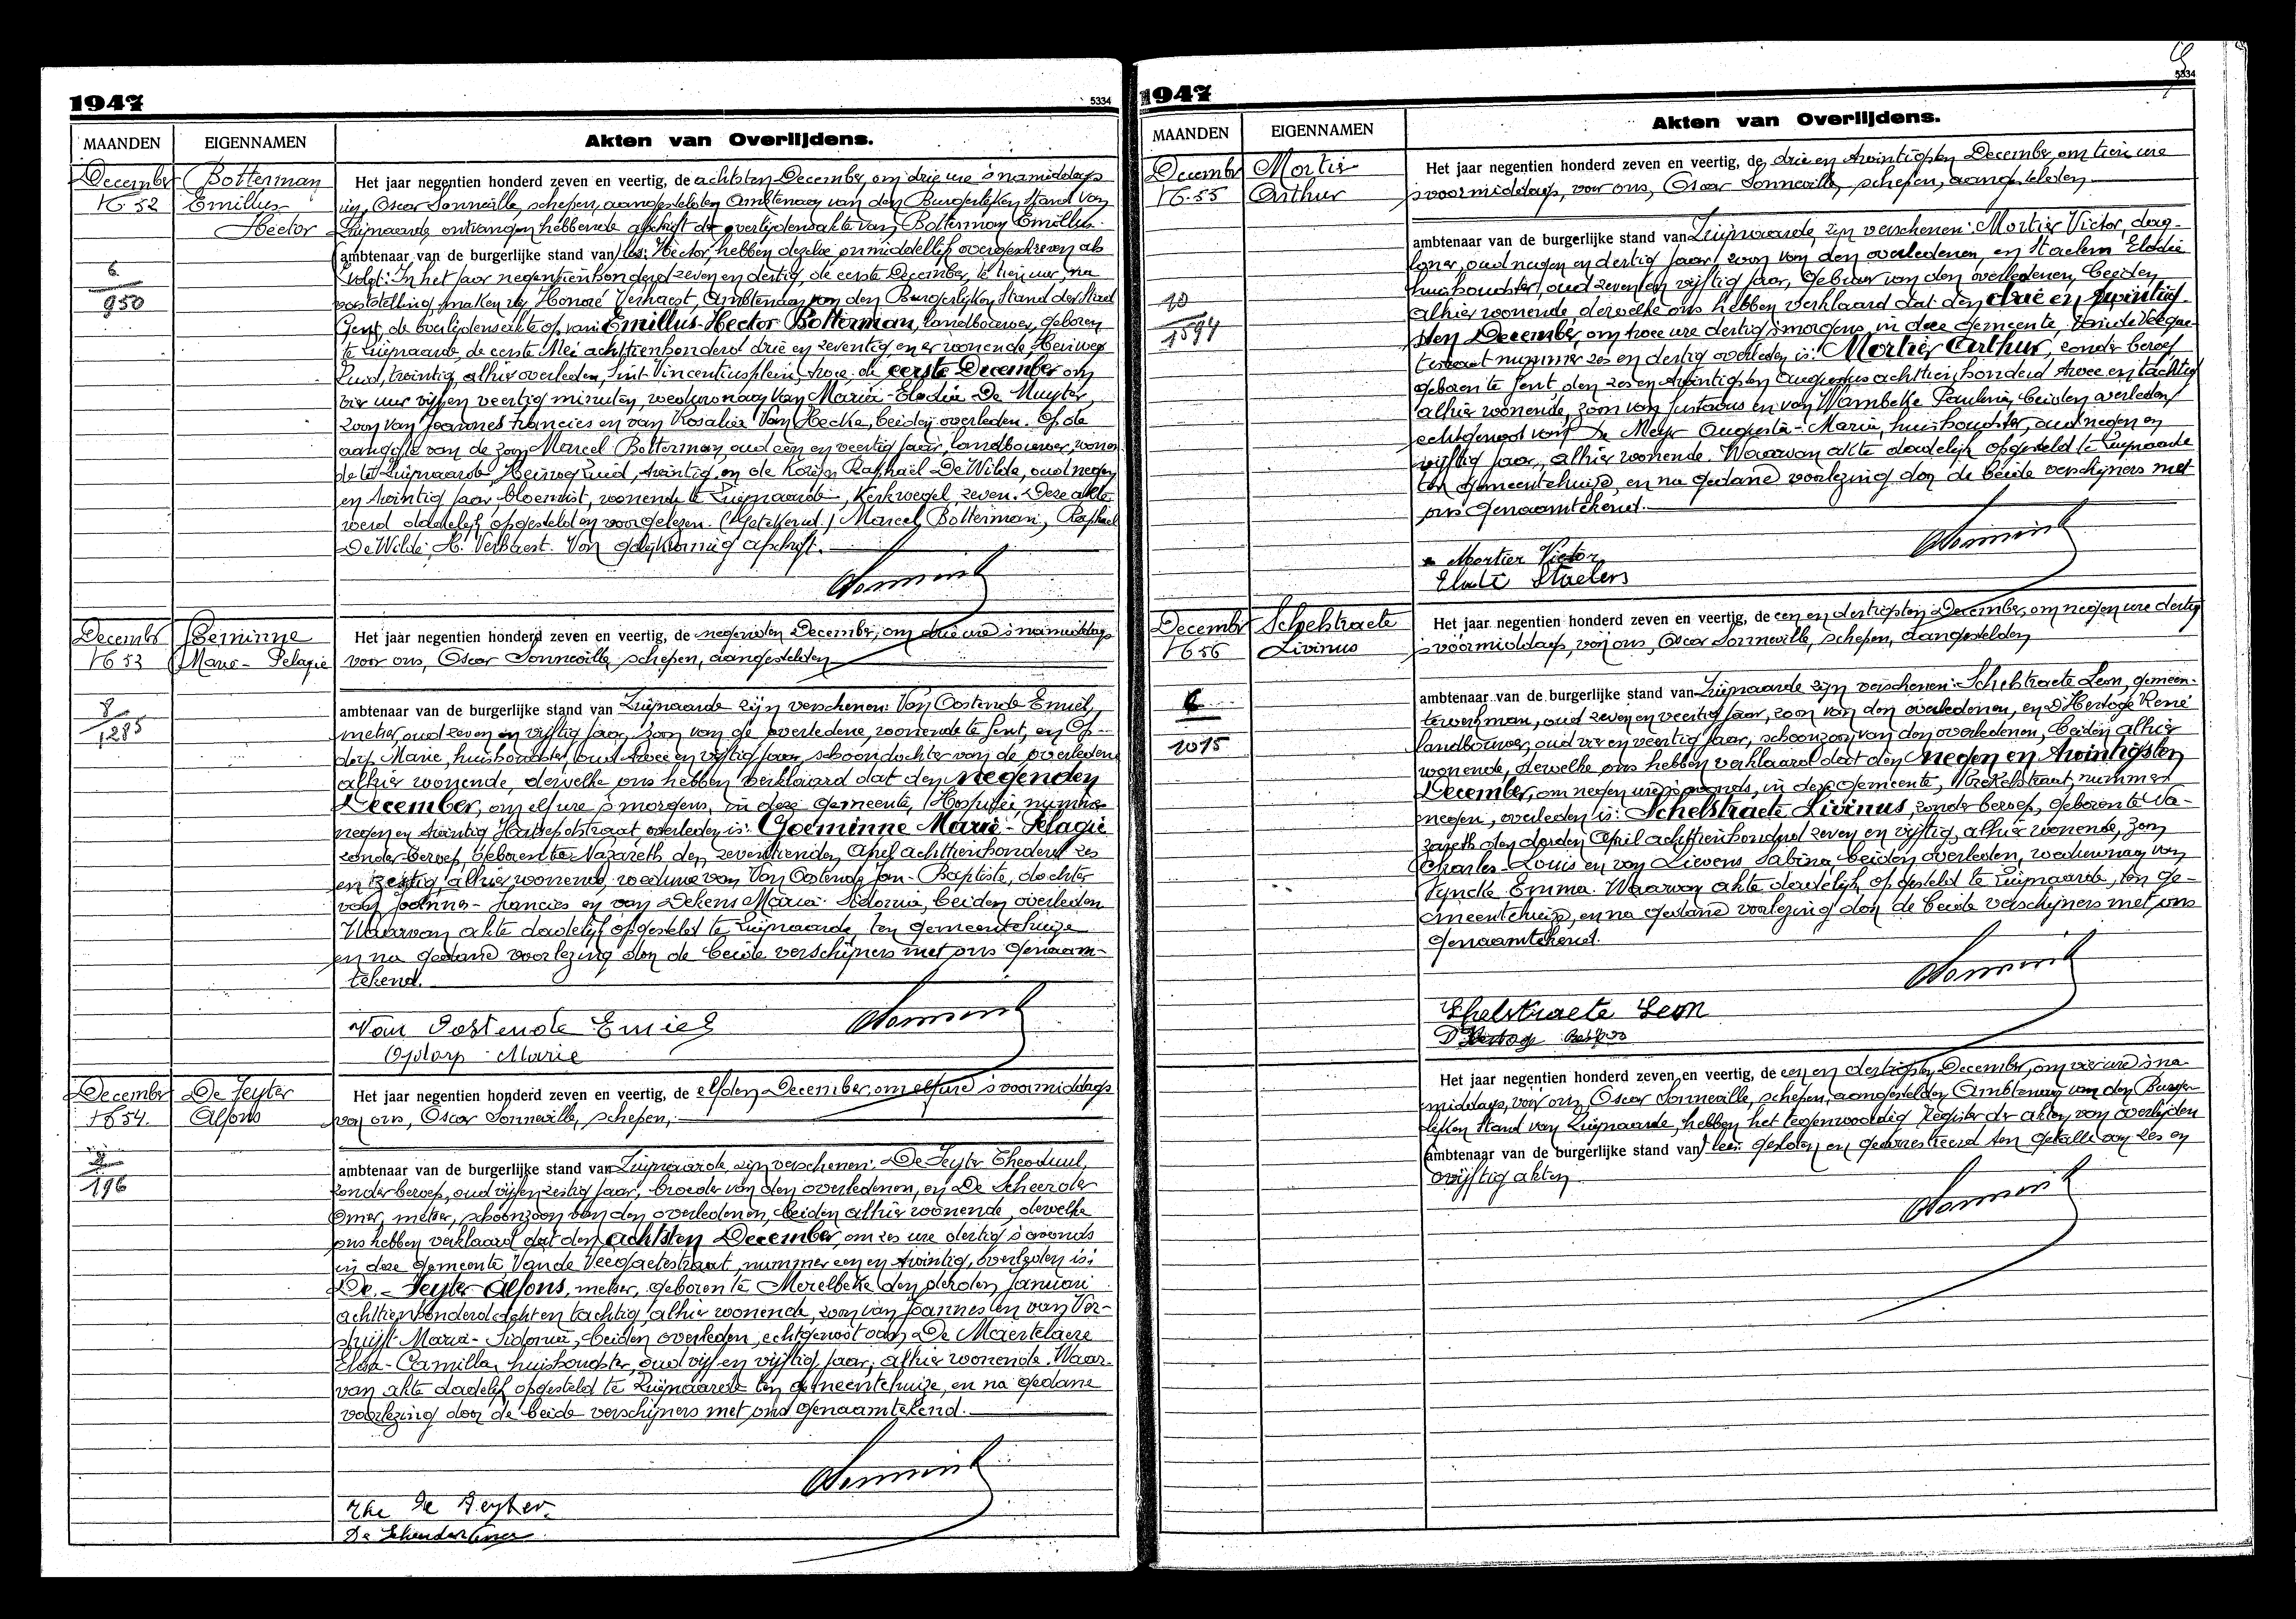 1947
5334
MAANDEN
EIGENNAMEN
Akten van Overlijdens.
December
N° 52
Botterman
Emillus
Hector
6
950
Het jaar negentien honderd zeven en veertig, de achtsten December, om drie ure 's namiddags
wij, Oscar Sonneville, schepen, aangestelden Ambtenaar van den Burgerlijken Stand van
Zwijnaarde ontvangen hebbende afschrift der overlijdensakte van Botterman Emillus
ambtenaar van de burgerlijke stand van Hector, hebben dezelve onmiddellijk overgeschreven als
volgt: In het jaar negentienhonderd zeven en dertig, de eerste December, te tien uur, na
vaststelling, maken wij Honoré Verhaest, Ambtenaar van den Burgerlijken Stand der Stad
Gent, de overlijdensakte op van: Emillus-Hector Botterman, landbouwer, geboren
te Zwijnaarde, de eerste Mei achttienhonderd drie en zeventig, en er wonende, Heirweg
Zuid, twintig, alhier overleden, Sint-Vincentiusplein, twee, de eerste December om
vier uur vijf en veertig minuten, weduwnaar van Maria-Elodia De Muyter,
zoon van Joannes Francies en van Rosalia Van Hecke, beiden overleden. Op de
aangifte van de zoon Marcel Botterman, oud één en veertig jaar, landbouwer, wonen
de te Zwijnaarde, Heirweg Zuid, twintig, en de Raphaël De Wilde, oud negen
en twintig jaar, bloemist, wonende te Zwijnaarde, Kerkwegel, zeven. Deze akte
werd dadelijk opgesteld en voorgelezen. (Getekend.) Marcel Botterman, Raphaël
De Wilde, H. Verhaest. Voor gelijkvormig afschrift.
December
N° 53
Goeminne
Marie-Pelagie
8
1285
Het jaar negentien honderd zeven en veertig, de negensten December, om drie ure 's namiddags
voor ons, Oscar Sonneville, schepen, aangestelden
ambtenaar van de burgerlijke stand van Zwijnaarde zijn verschenen: Van Oostende Emiel,
metser, oud zeven en vijftig jaar, zoon van de overledene, wonende te Gent, en Op-
dorp Marie, huishoudster, oud twee en vijftig jaar, schoondochter van de overledene
alhier wonende, dewelke ons hebben verklaard dat den negenden
December, om elf ure 's morgens, in deze gemeente, Hospitie, nummer
negen en twintig Hutsepotstraat, overleden is: Goeminne Marie-Pelagie
zonder beroep, geboren te Nazareth, den zeventienden April achttienhonderd zes
en zestig, alhier wonende, weduwe van Van Oostende Jan-Baptiste, dochter
van Joannes-Francies en van Dekens Maria-Sidonia, beiden overleden.
Waarvan akte dadelijk opgesteld te Zwijnaarde, ten gemeentehuize
en na gedane voorlezing door de beide verschijners met ons genaam-
tekend.
Van Oostende Emiel
Opdorp Marie
December
N° 54.
De Feyter
Alfons
196
Het jaar negentien honderd zeven en veertig, de elfden December, om elf ure 's voormiddags
voor ons, Oscar Sonneville, schepen,
ambtenaar van de burgerlijke stand van Zwijnaarde, zijn verschenen: De Feyter Theoduul,
zonder beroep, oud vijf en zestig jaar, broeder van den overledenen, en De Scheerder
Omer, metser, schoonzoon van den overledenen, beiden alhier wonende, dewelke
ons hebben verklaard dat den achtsten December, om zes ure dertig 's avonds
in deze gemeente, Van de Veegaetestraat, nummer een en twintig, overleden is:
De Feyter Alfons, metser, geboren te Merelbeke den derden Januari
achttienhonderd acht en tachtig, alhier wonende, zoon van Joannes en van Ver-
struijft Maria-Sidonia, beiden overleden, echtgenoot van De Maertelaere
Elisa-Camilla, huishoudster, oud vijf en vijftig jaar, alhier wonende. Waar-
van akte dadelijk opgesteld te Zwijnaarde ten gemeentehuize, en na gedane
voorlezing door de beide verschijners met ons genaamtekend.
The De Feyter
De Scheerder Omer
1947
5334
MAANDEN
EIGENNAMEN
Akten van Overlijdens.
December
N° 55
Mortier
Arthur
10
1594
Het jaar negentien honderd zeven en veertig, de drie en twintigsten December, om tien ure
's voormiddags, voor ons, Oscar Sonneville, schepen, aangestelden
ambtenaar van de burgerlijke stand van Zwijnaarde, zijn verschenen: Mortier Victor, dag-
loner, oud negen en dertig jaar, zoon van den overledenen, en Staelens Elodie
huishoudster, oud zeven en vijftig jaar, gebuur van den overledenen, beiden
alhier wonende, dewelke ons hebben verklaard dat den drie en twintig-
sten December, om twee ure dertig 's morgens, in deze gemeente, Van de Veegae-
testraat nummer zes en dertig overleden is: Mortier Arthur, zonder beroep
geboren te Gent, den zes en twintigsten Augustus achttienhonderd twee en tachtig
alhier wonende, zoon van Gustavus en van Wambeke Paulina, beiden overleden
echtgenoot van De Meyer Augusta-Maria, huishoudster, oud negen en
vijftig jaar, alhier wonende. Waarvan akte dadelijk opgesteld te Zwijnaarde
ten gemeentehuize, en na gedane voorlezing door de beide verschijners met
ons genaamtekend.
Mortier Victor
Elodie Staelens
December
N° 56
Schelstraete
Livinus
6
1015
Het jaar negentien honderd zeven en veertig, de een en dertigsten December, om negen ure dertig
's voormiddags, voor ons, Oscar Sonneville, schepen, aangestelden
ambtenaar van de burgerlijke stand van Zwijnaarde zijn verschenen: Schelstraete Leon, gemeen-
tewerkman, oud zeven en veertig jaar, zoon van den overledenen, en D'Hertoge René
landbouwer, oud vier en veertig jaar, schoonzoon van den overledenen, beiden alhier
wonende, dewelke ons hebben verklaard dat den negen en twintigsten
December, om negen ure 's avonds, in deze gemeente, Brekelstraat, nummer
negen, overleden is: Schelstraete Livinus, zonder beroep, geboren te Na-
zareth den derden April achttienhonderd zeven en vijftig, alhier wonende, zoon
Charles-Louis en van Lievens Sabina, beiden overleden, weduwnaar van
Tyncke Emma. Waarvan akte dadelijk opgesteld te Zwijnaarde, ten ge-
meentehuize, en na gedane voorlezing door de beide verschijners met ons
genaamtekend.
Schelstraete Leon
Het jaar negentien honderd zeven en veertig, de een en dertigsten December, om vier ure 's na-
middags, voor ons, Oscar Sonneville, schepen, aangestelden Ambtenaar van den Burger-
lijken Stand van Zwijnaarde, hebben het tegenwoordig register der akten van overlijden
ambtenaar van de burgerlijke stand van gesloten en gearresteerd ten getalle van zes en
vijftig akten